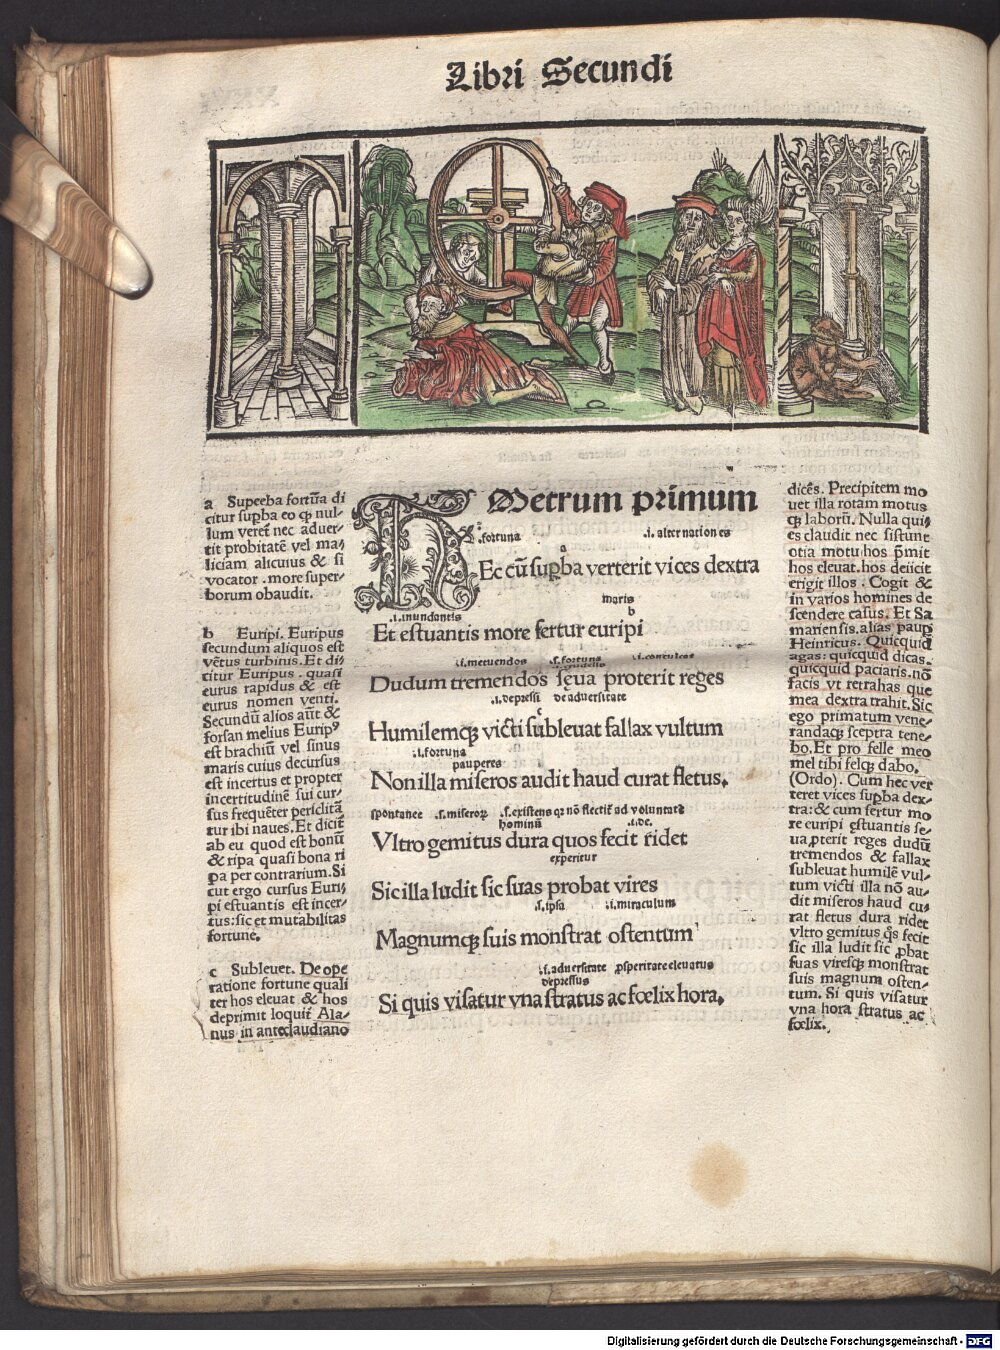 Libri Secundi
a Supeeba fortūa di
citur suꝑba eo ꝙ nul-
lum veret nec aduer-
tit probitatē vel ma/
liciam alicuius & si
vocator . more super/
borum obaudit.
b Euripi. Euripus
secundum aliquos est
vētus turbinis. Et di/
citur Euripus . quasi
eurus rapidus & est
eurus nomen venti.
Secundū alios aūt &
forsan melius Euripꝰ
est brachiū vel sinus
maris cuius decursus
est incertus et propter
incertitudinē sui cur/
sus frequēter periclitā
tur ibi naues. Et dicit̄
ab eu quod est bonū
& ripa quasi bona ri
pa per contrarium. Si
cut ergo cursus Euri/
pi estuantis est incer/
tus: sic et mutabilitas
fortune.
c Subleuet. De ope
ratione fortune quali
ter hos eleuat & hos
deprimit loquit̄ Ala/
nus in anteclaudiano
Metrum primum
.s. fortuna .i. alternationes
a
HEc cū suꝑba verterit vices dextra
maris
.i. inundantis b
Et estuantis more fertur euripi
.i. metuendos .s. fortuna crudelis .i. conculcat
Dudum tremendos sęua proterit reges
.i. depressi de aduersitate
c
Humilemqꝫ victi subleuat fallax vultum
.i. fortuna
pauperes
Non illa miseros audit haud curat fletus.
spontanee .s. miseroꝝ .s. existens qꝛ nō flectit̄ ad voluntatē
hominū .i. de.
Vltro gemitus dura quos fecit ridet
experitur
Sic illa ludit sic suas probat vires
.s. ipsa .i. miraculum
Magnumqꝫ suis monstrat ostentum
.s. aduersitate ꝓsperitate eleuatus
depressus
Si quis visatur vna stratus ac fœlix hora.
dicēs. Precipitem mo
uet illa rotam motus
qꝫ laborū. Nulla qui/
es claudit nec sistunt
otia motū hos p̄mit
hos eleuat. hos deiicit
erigit illos . Cogit &
in varios homines de
scendere casus. Et Sa
mariensis. alias pauꝑ
Heinricus. Quicquid
agas: quicquid dicas.
quicquid paciaris. nō
facis vt retrahas que
mea dextra trahit. Sic
ego primatum vene/
randaqꝫ sceptra tene/
bo. Et pro felle meo
mel tibi felqꝫ dabo.
(Ordo). Cum hec ver
teret vices suꝑba dex/
tra: & cum fertur mo
re euripi ęstuantis sę/
ua ꝓterit reges dudū
tremendos & fallax
subleuat humilē vul/
tum victi illa nō au/
dit miseros haud cu/
rat fletus dura ridet
vltro gemitus q̄s fecit
sic illa ludit sic ꝓbat
suas viresqꝫ monstrat
suis magnum osten/
tum. Si quis visatur
vna hora stratus ac
fœlix.
Digitalisierung gefördert durch die Deutsche Forschungsgemeinschaft - DFG